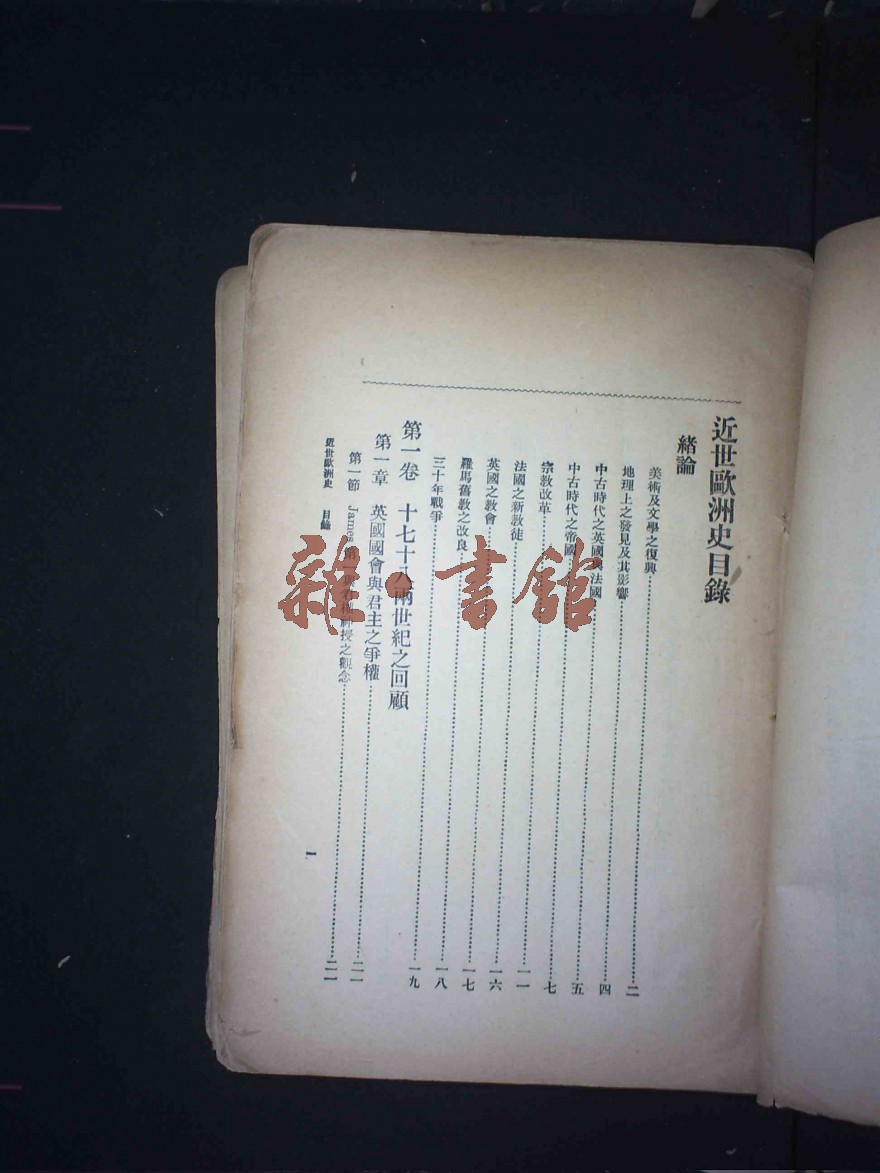 近世歐洲史目錄
緒論
美術及文學之復興……二
地理上之發見及其影響……四
中古時代之英國與法國……五
中古時代之帝國……七
宗教改革……一一
法國之新教徒……一六
英國之教會……一七
羅馬舊教之改良……一八
三十年戰爭……一九
第一卷 十七十八兩世紀之回顧
第一章 英國國會與君主之爭權……二一
第一節 James第一與君權神授之觀念……
近世歐洲史 目錄
一
雜·書館